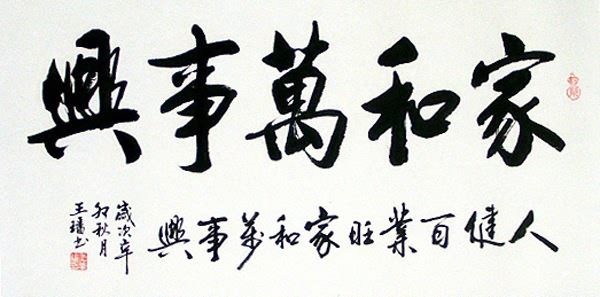 家和萬事興
人健百業旺家和萬事興
歲次辛
卯秋月
王书